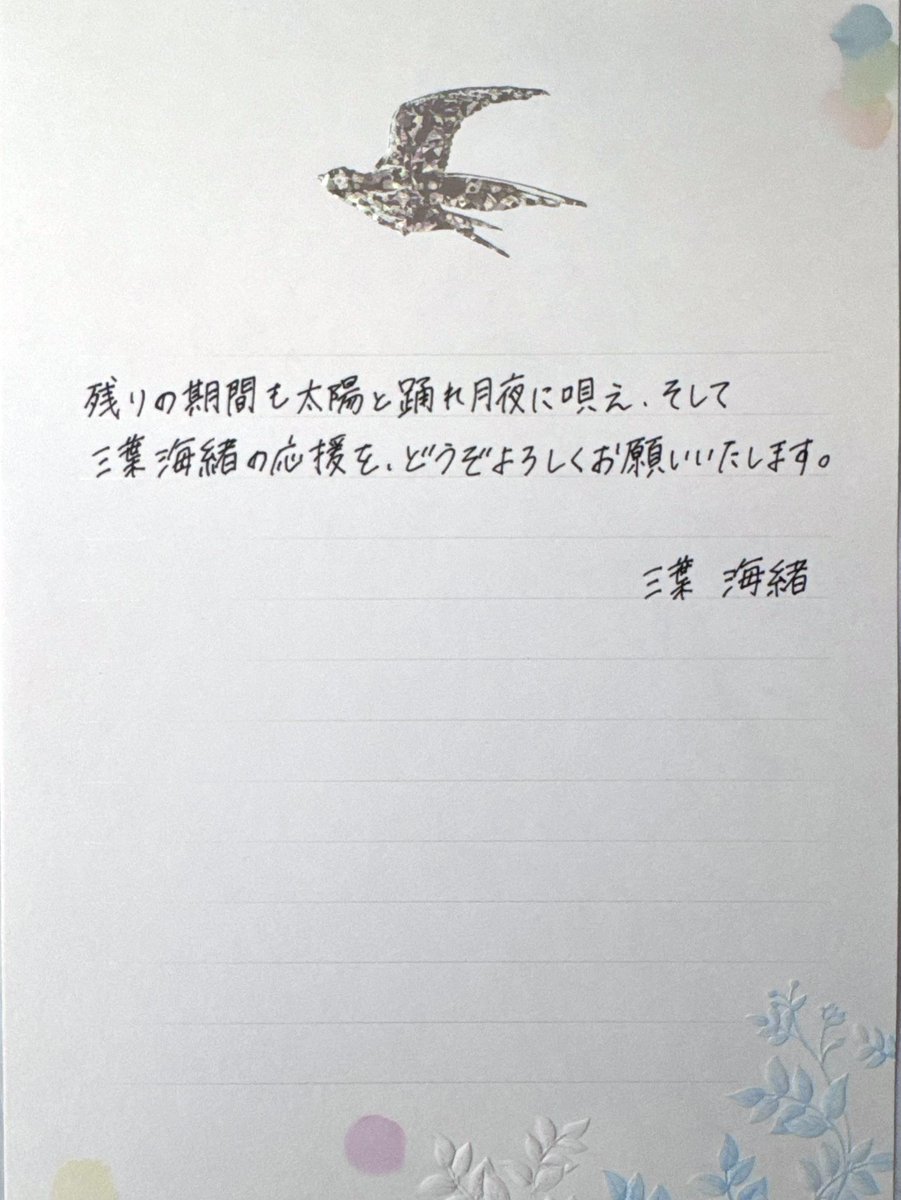 残りの期間も太陽と踊れ月夜に唄え、そして
三葉海緒の応援を、どうぞよろしくお願いいたします。
三葉 海緒